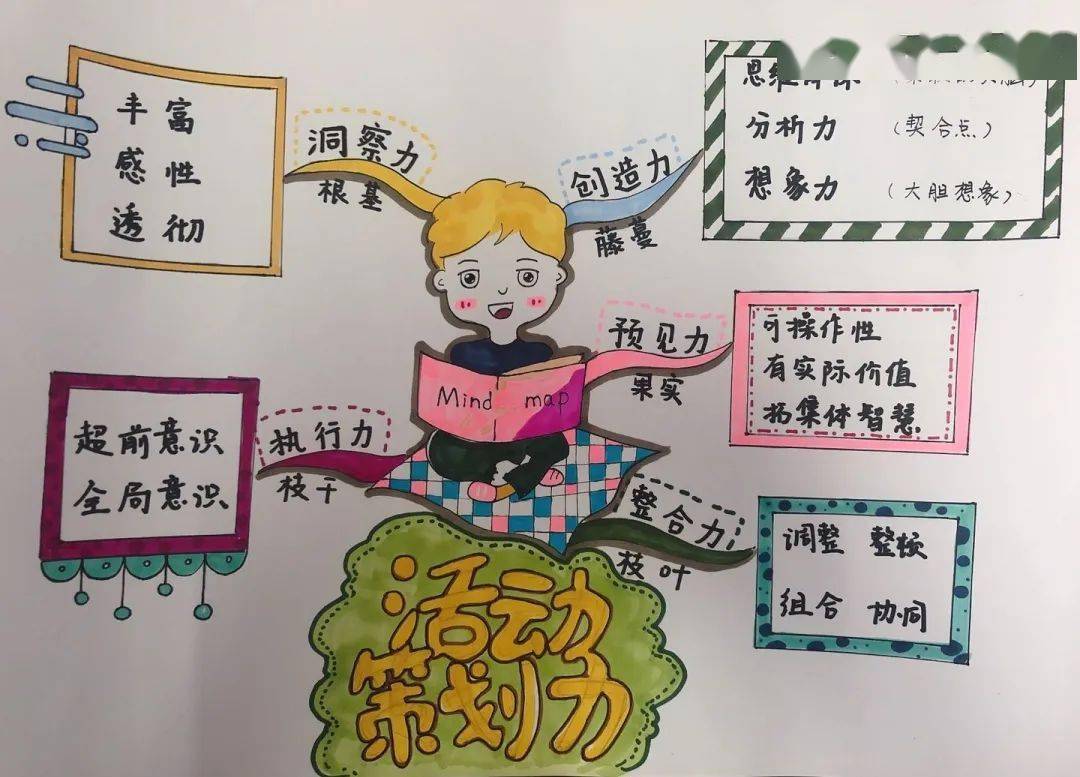 丰富
感性
透彻
洞察力
根基
创造力
藤蔓
思维
分析力 (契合点)
想象力 (大胆想象)
预见力
果实
可操作性
有实际价值
拓集体智慧
Mind map
执行力
枝干
超前意识
全局意识
整合力
枝叶
调整 整顿
组合 协同
活动
策划力